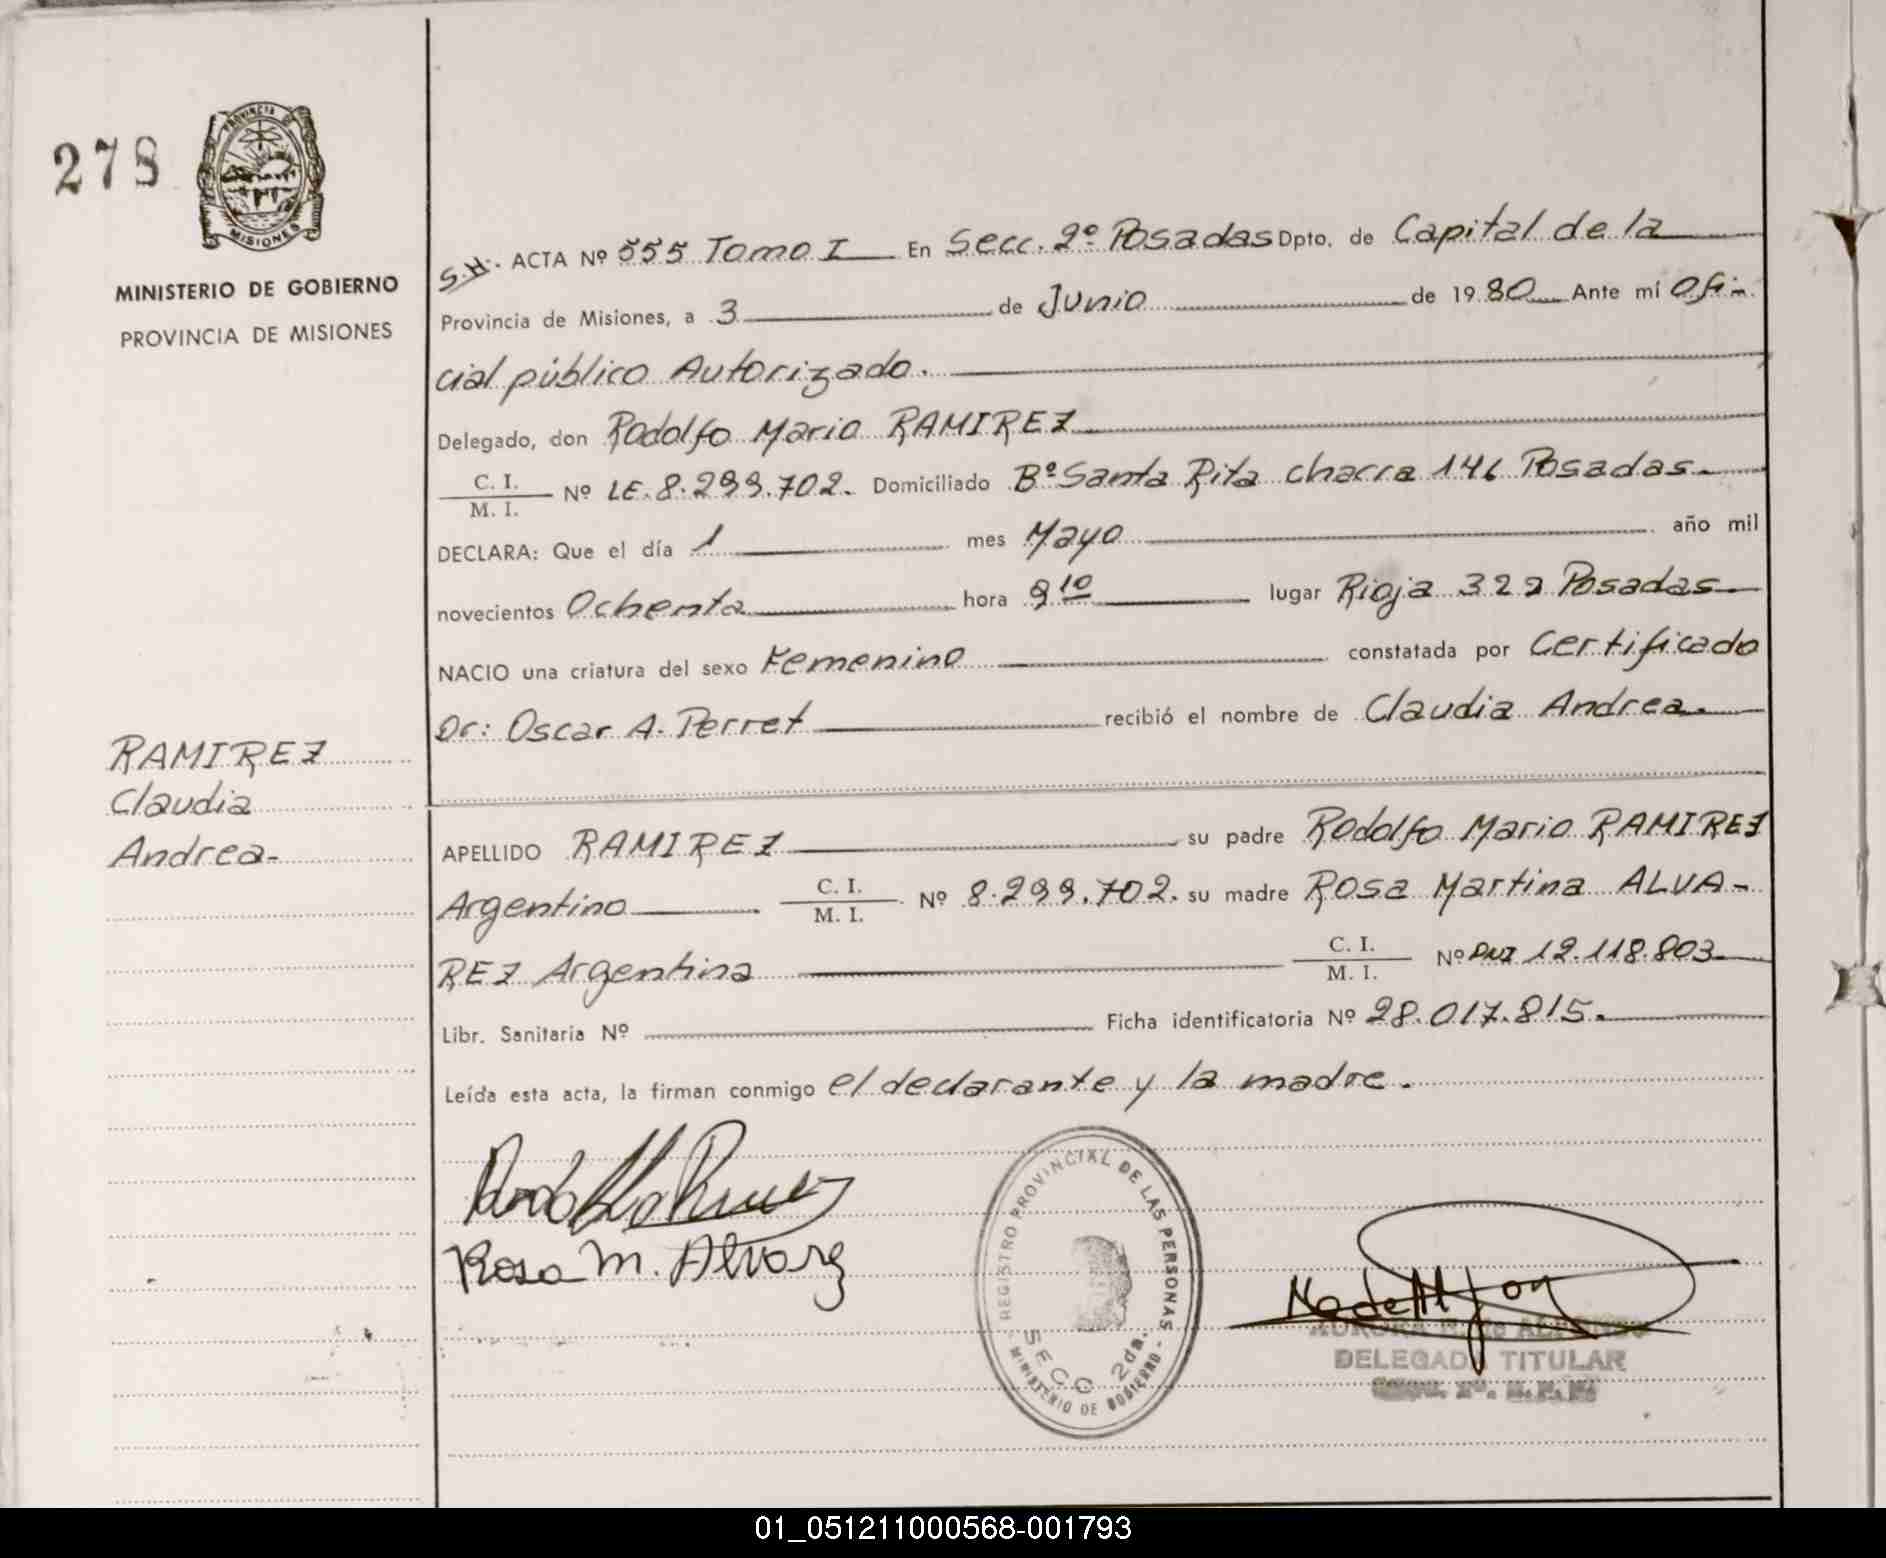 278
PROVINCIA DE
MISIONES
MINISTERIO DE GOBIERNO
PROVINCIA DE MISIONES
S.H. ACTA Nº 555 Tomo I En Secc. 2º Posadas Dpto. de Capital de la
Provincia de Misiones, a 3 de Junio de 1980 Ante mí Ofi-
cial público Autorizado.
Delegado, don Rodolfo Mario RAMIREZ
C. I.
M. I. Nº LE. 8.299.702. Domiciliado Bº Santa Rita chacra 146 Posadas.
DECLARA: Que el día 1 mes Mayo año mil
novecientos Ochenta hora 9 10 lugar Rioja 322 Posadas
NACIO una criatura del sexo Femenino constatada por Certificado
Dr: Oscar A. Perret recibió el nombre de Claudia Andrea.
RAMIREZ
Claudia
Andrea-
APELLIDO RAMIREZ su padre Rodolfo Mario RAMIREZ
Argentino C. I.
M. I. Nº 8.299.702. su madre Rosa Martina ALVA-
REZ Argentina C. I.
M. I. Nº DNI 12.118.803
Libr. Sanitaria Nº Ficha identificatoria Nº 28.017.815.
Leída esta acta, la firman conmigo el declarante y la madre.
Rosa M. Alvarez
REGISTRO PROVINCIAL DE LAS PERSONAS
SECC 2da.
MINISTERIO DE GOBIERNO
AURORA de ALFONSO
DELEGADA TITULAR
01_051211000568-001793